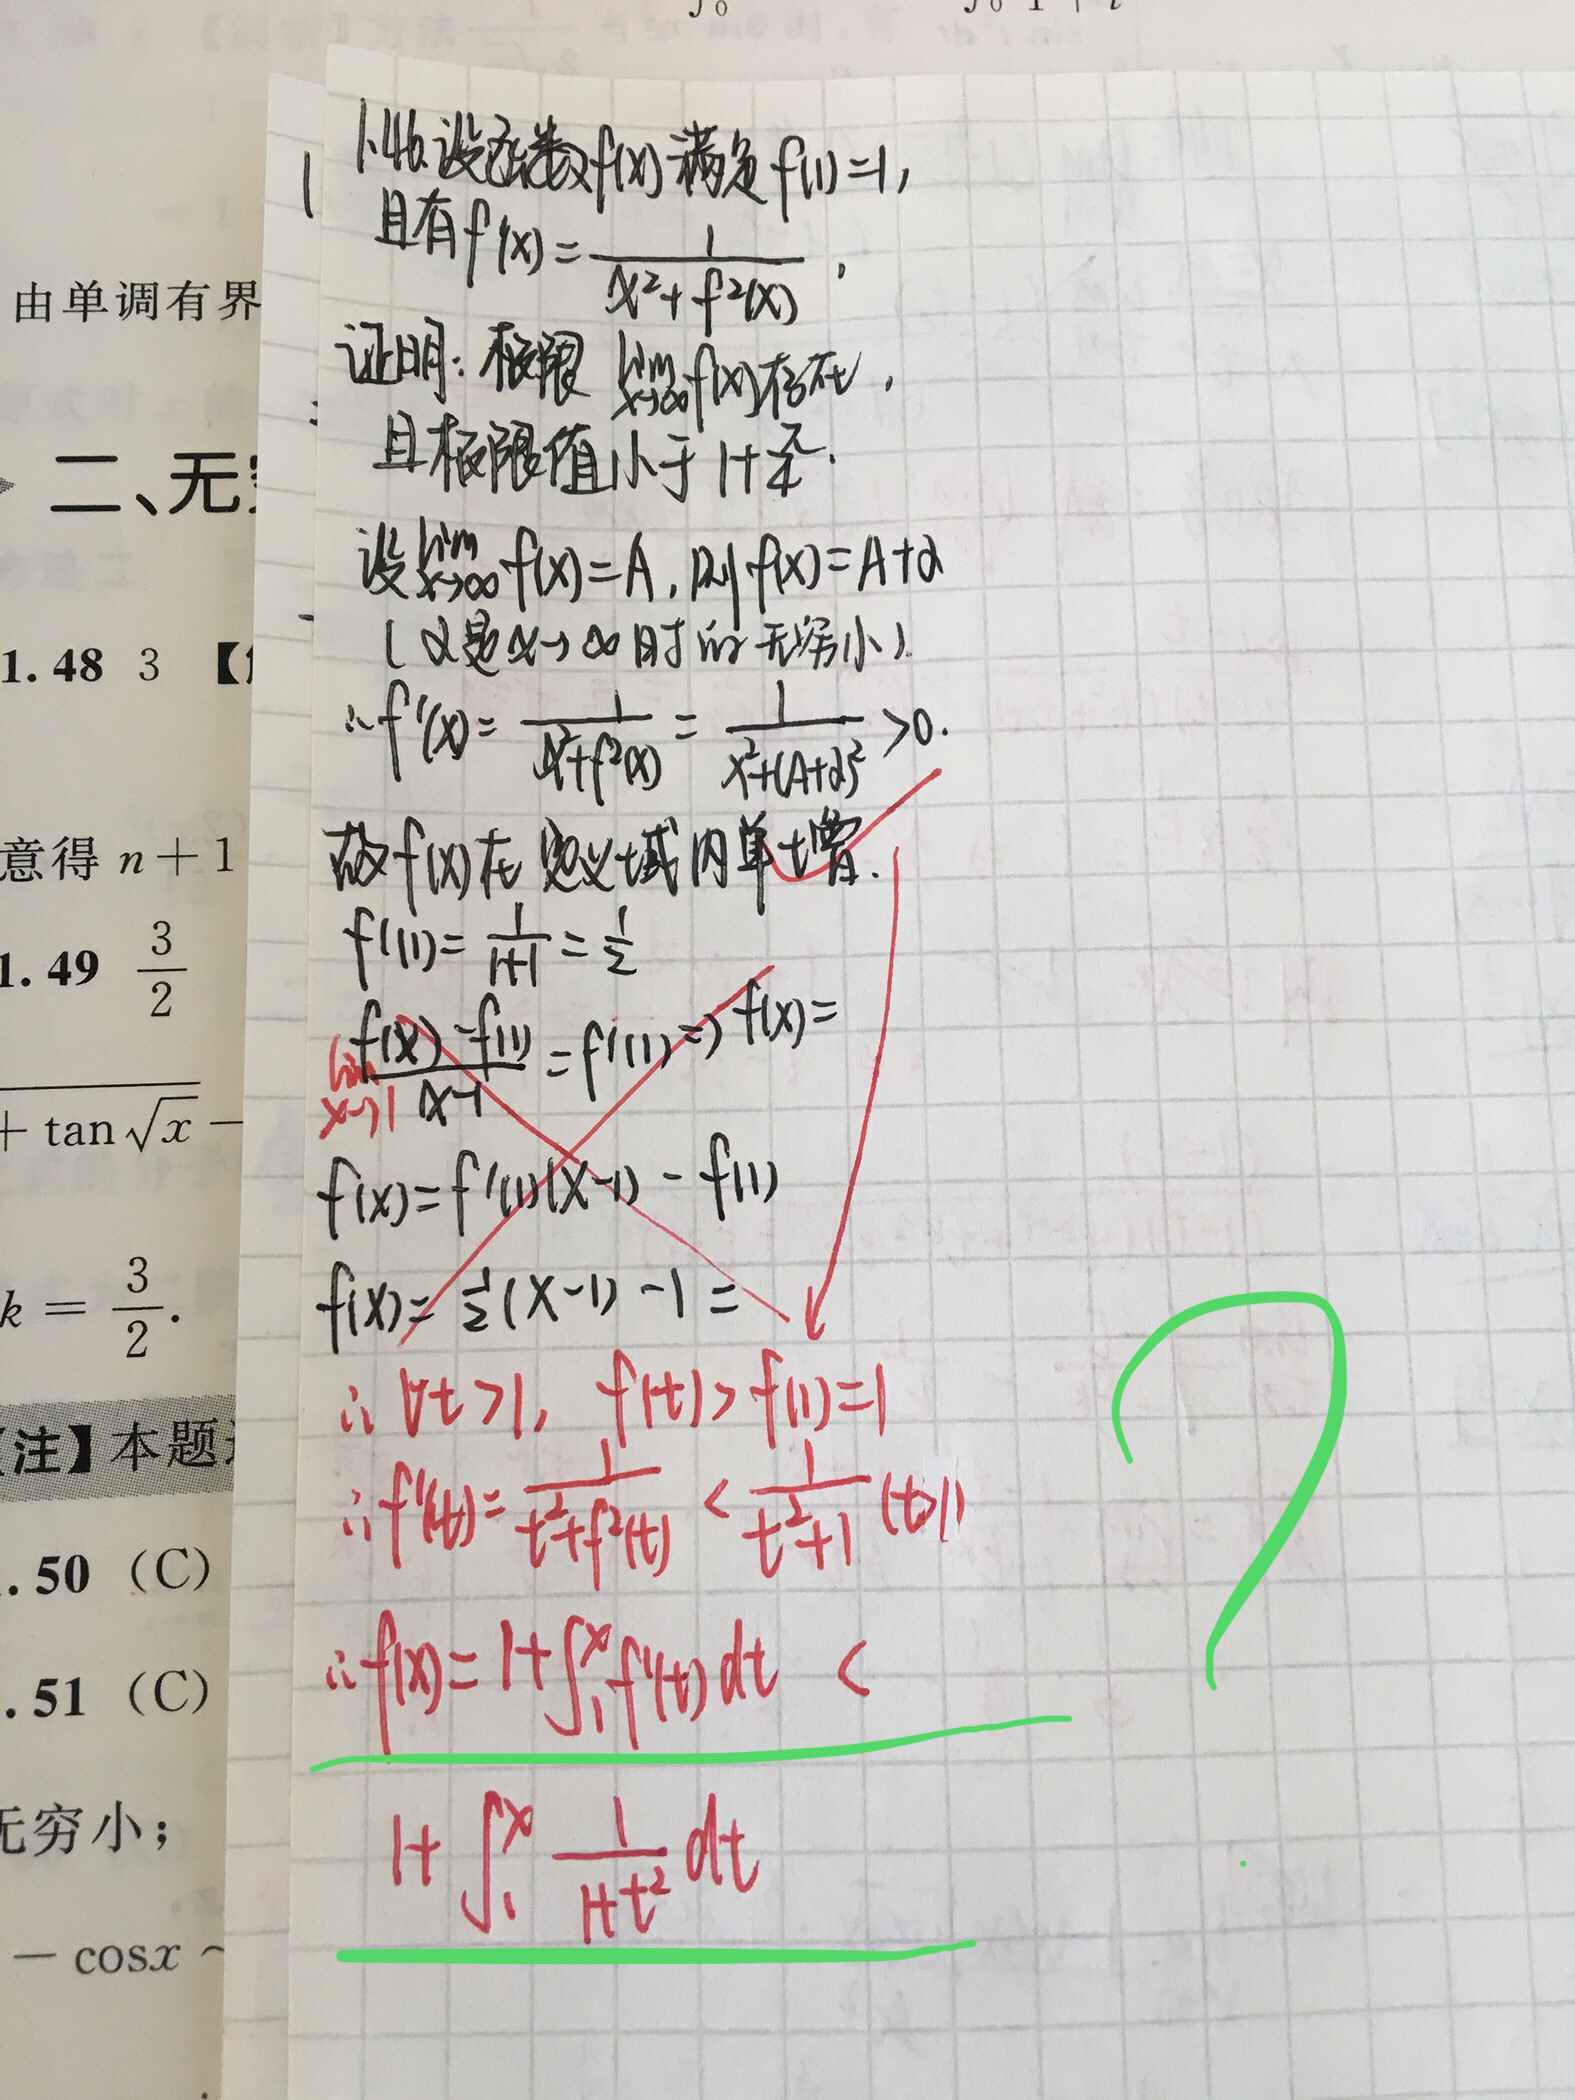 由单调有界
二、无
1.48 3 【
意得 n+1
1.49 3/2
+ tan√x −
k = 3/2.
【注】本题
.50 (C)
.51 (C)
无穷小;
− cosx ~
1.46.设函数f(x)满足f(1)=1,
且有f'(x)= 1/(x²+f²(x)) ,
证明: 极限 lim x→∞ f(x)存在,
且极限值小于 1+π/4.
设 lim x→∞ f(x)=A, 则f(x)=A+α
(α是x→∞时的无穷小).
∴f'(x)= 1/(x²+f²(x)) = 1/(x²+(A+α)²) >0.
故f(x)在定义域内单增.
f'(1)= 1/(1+1) = 1/2
lim x→1 (f(x)-f(1))/(x-1) =f'(1)=> f(x)=
f(x)=f'(1)(x-1) - f(1)
f(x)= 1/2 (x-1) -1 =
∴ ∀t>1, f(t)>f(1)=1
∴f'(t)= 1/(t²+f²(t)) < 1/(t²+1) (t>1)
∴f(x)= 1+∫₁ˣ f'(t)dt <
1+ ∫₁ˣ 1/(1+t²) dt